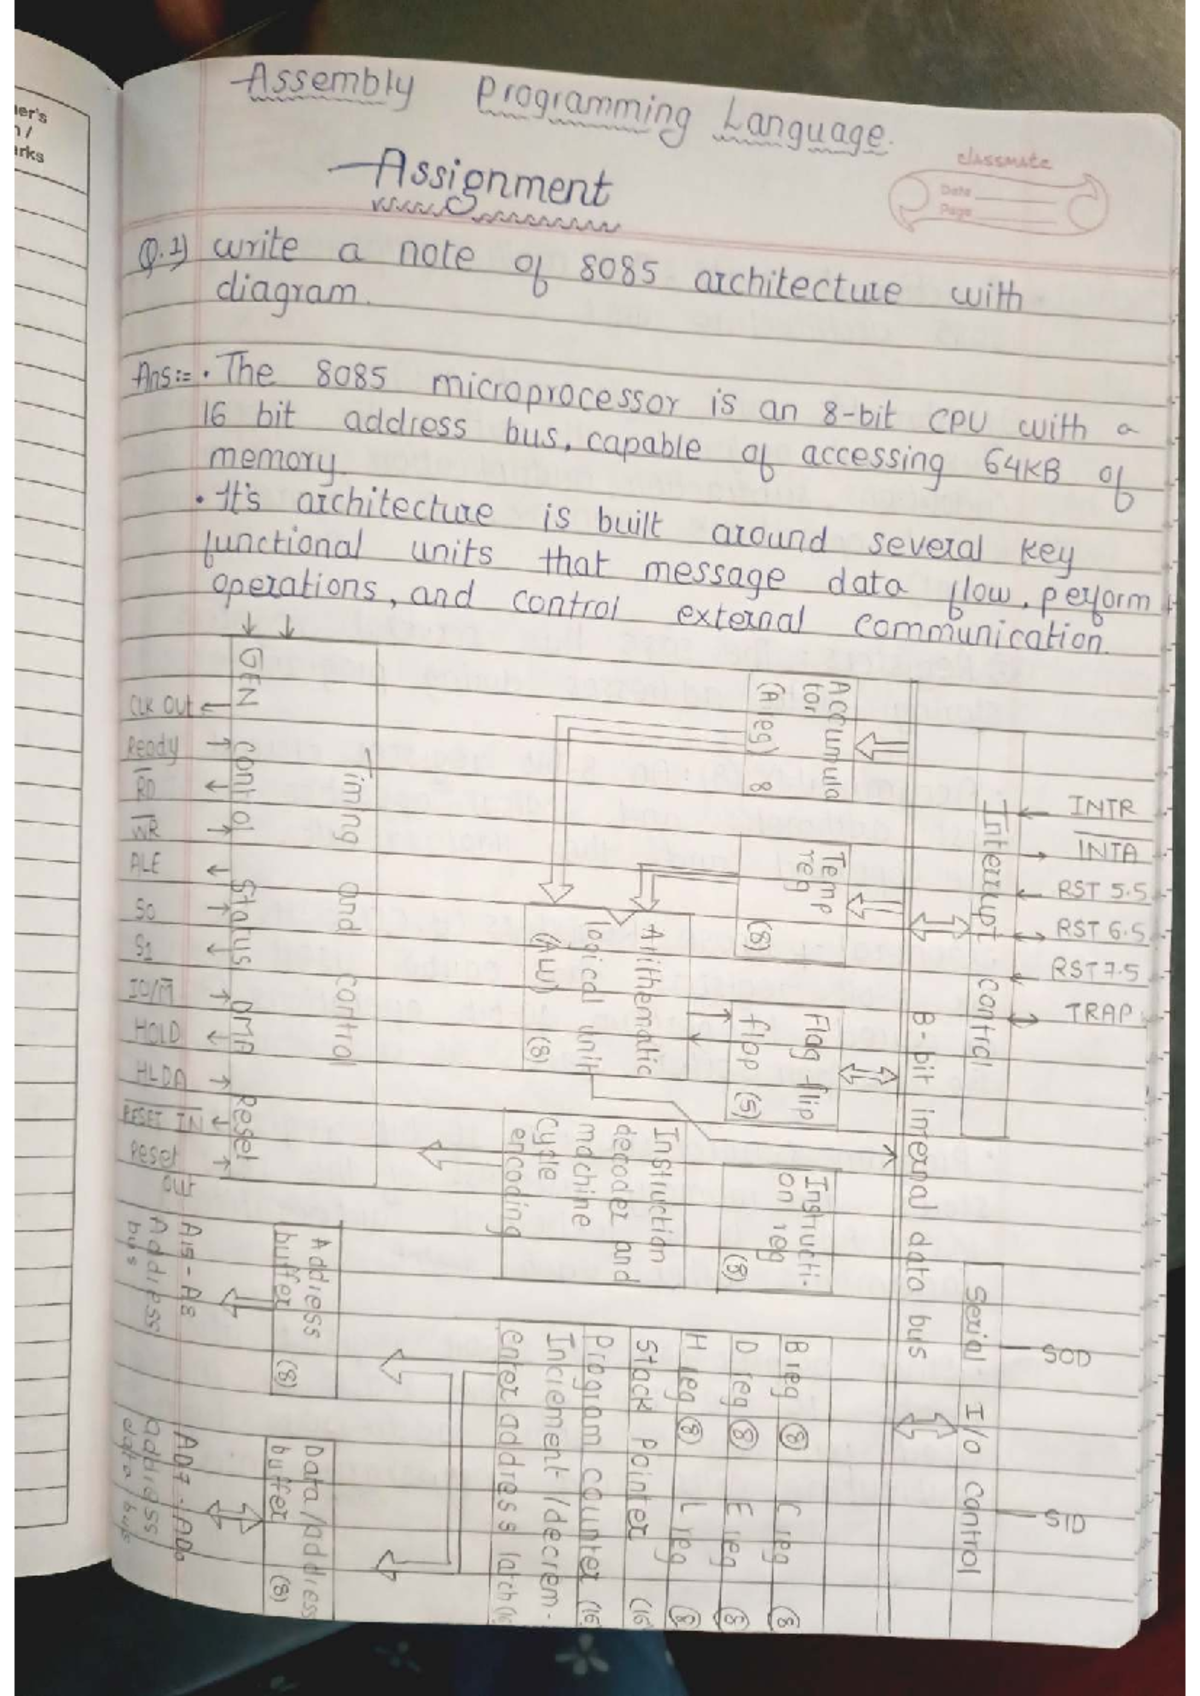 er's
n /
arks
Assembly Programming Language.
Assignment
classmate
Date
Page
Q.1) write a note of 8085 architecture with
diagram.
Ans:= • The 8085 microprocessor is an 8-bit CPU with a
16 bit address bus, capable of accessing 64KB of
memory.
• It's architecture is built around several key
functional units that message data flow, perform
operations, and control external communication.
INTR
INTA
RST 5.5
RST 6.5
RST 7.5
TRAP
SOD
STD
Interrupt control
Serial I/O control
8-bit internal data bus
Accumula
tor
(A reg) 8
Temp
reg
(8)
Flag flip
flop (5)
Instructi-
on reg
(8)
B reg (8) C reg (8)
D reg (8) E reg (8)
H reg (8) L reg (8)
Stack Pointer (16
Program counter (16
Increment/decrem-
enter address latch (16
Arithematic
logical unit
(ALU) (8)
Instruction
decoder and
machine
cycle
encoding
Timing and control
GEN control Status DMA Reset
CLK Out
Ready
RD
WR
ALE
S0
S1
IO/M
HOLD
HLDA
RESET IN
Reset
out
Address
buffer (8)
Data/address
buffer (8)
A15-A8
Address
bus
AD7-AD0
address
data bus